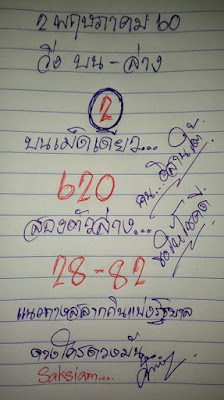 2 พฤษภาคม 60
วิ่ง บน - ล่าง
2
บนเม็ดเดียว...
620
สองตัวล่าง...
28-82
คน...อีสานใต้
ขอให้โชคดี
แนวทางสลากกินแบ่งรัฐบาล
ดวงใครดวงมัน
Saksiam....